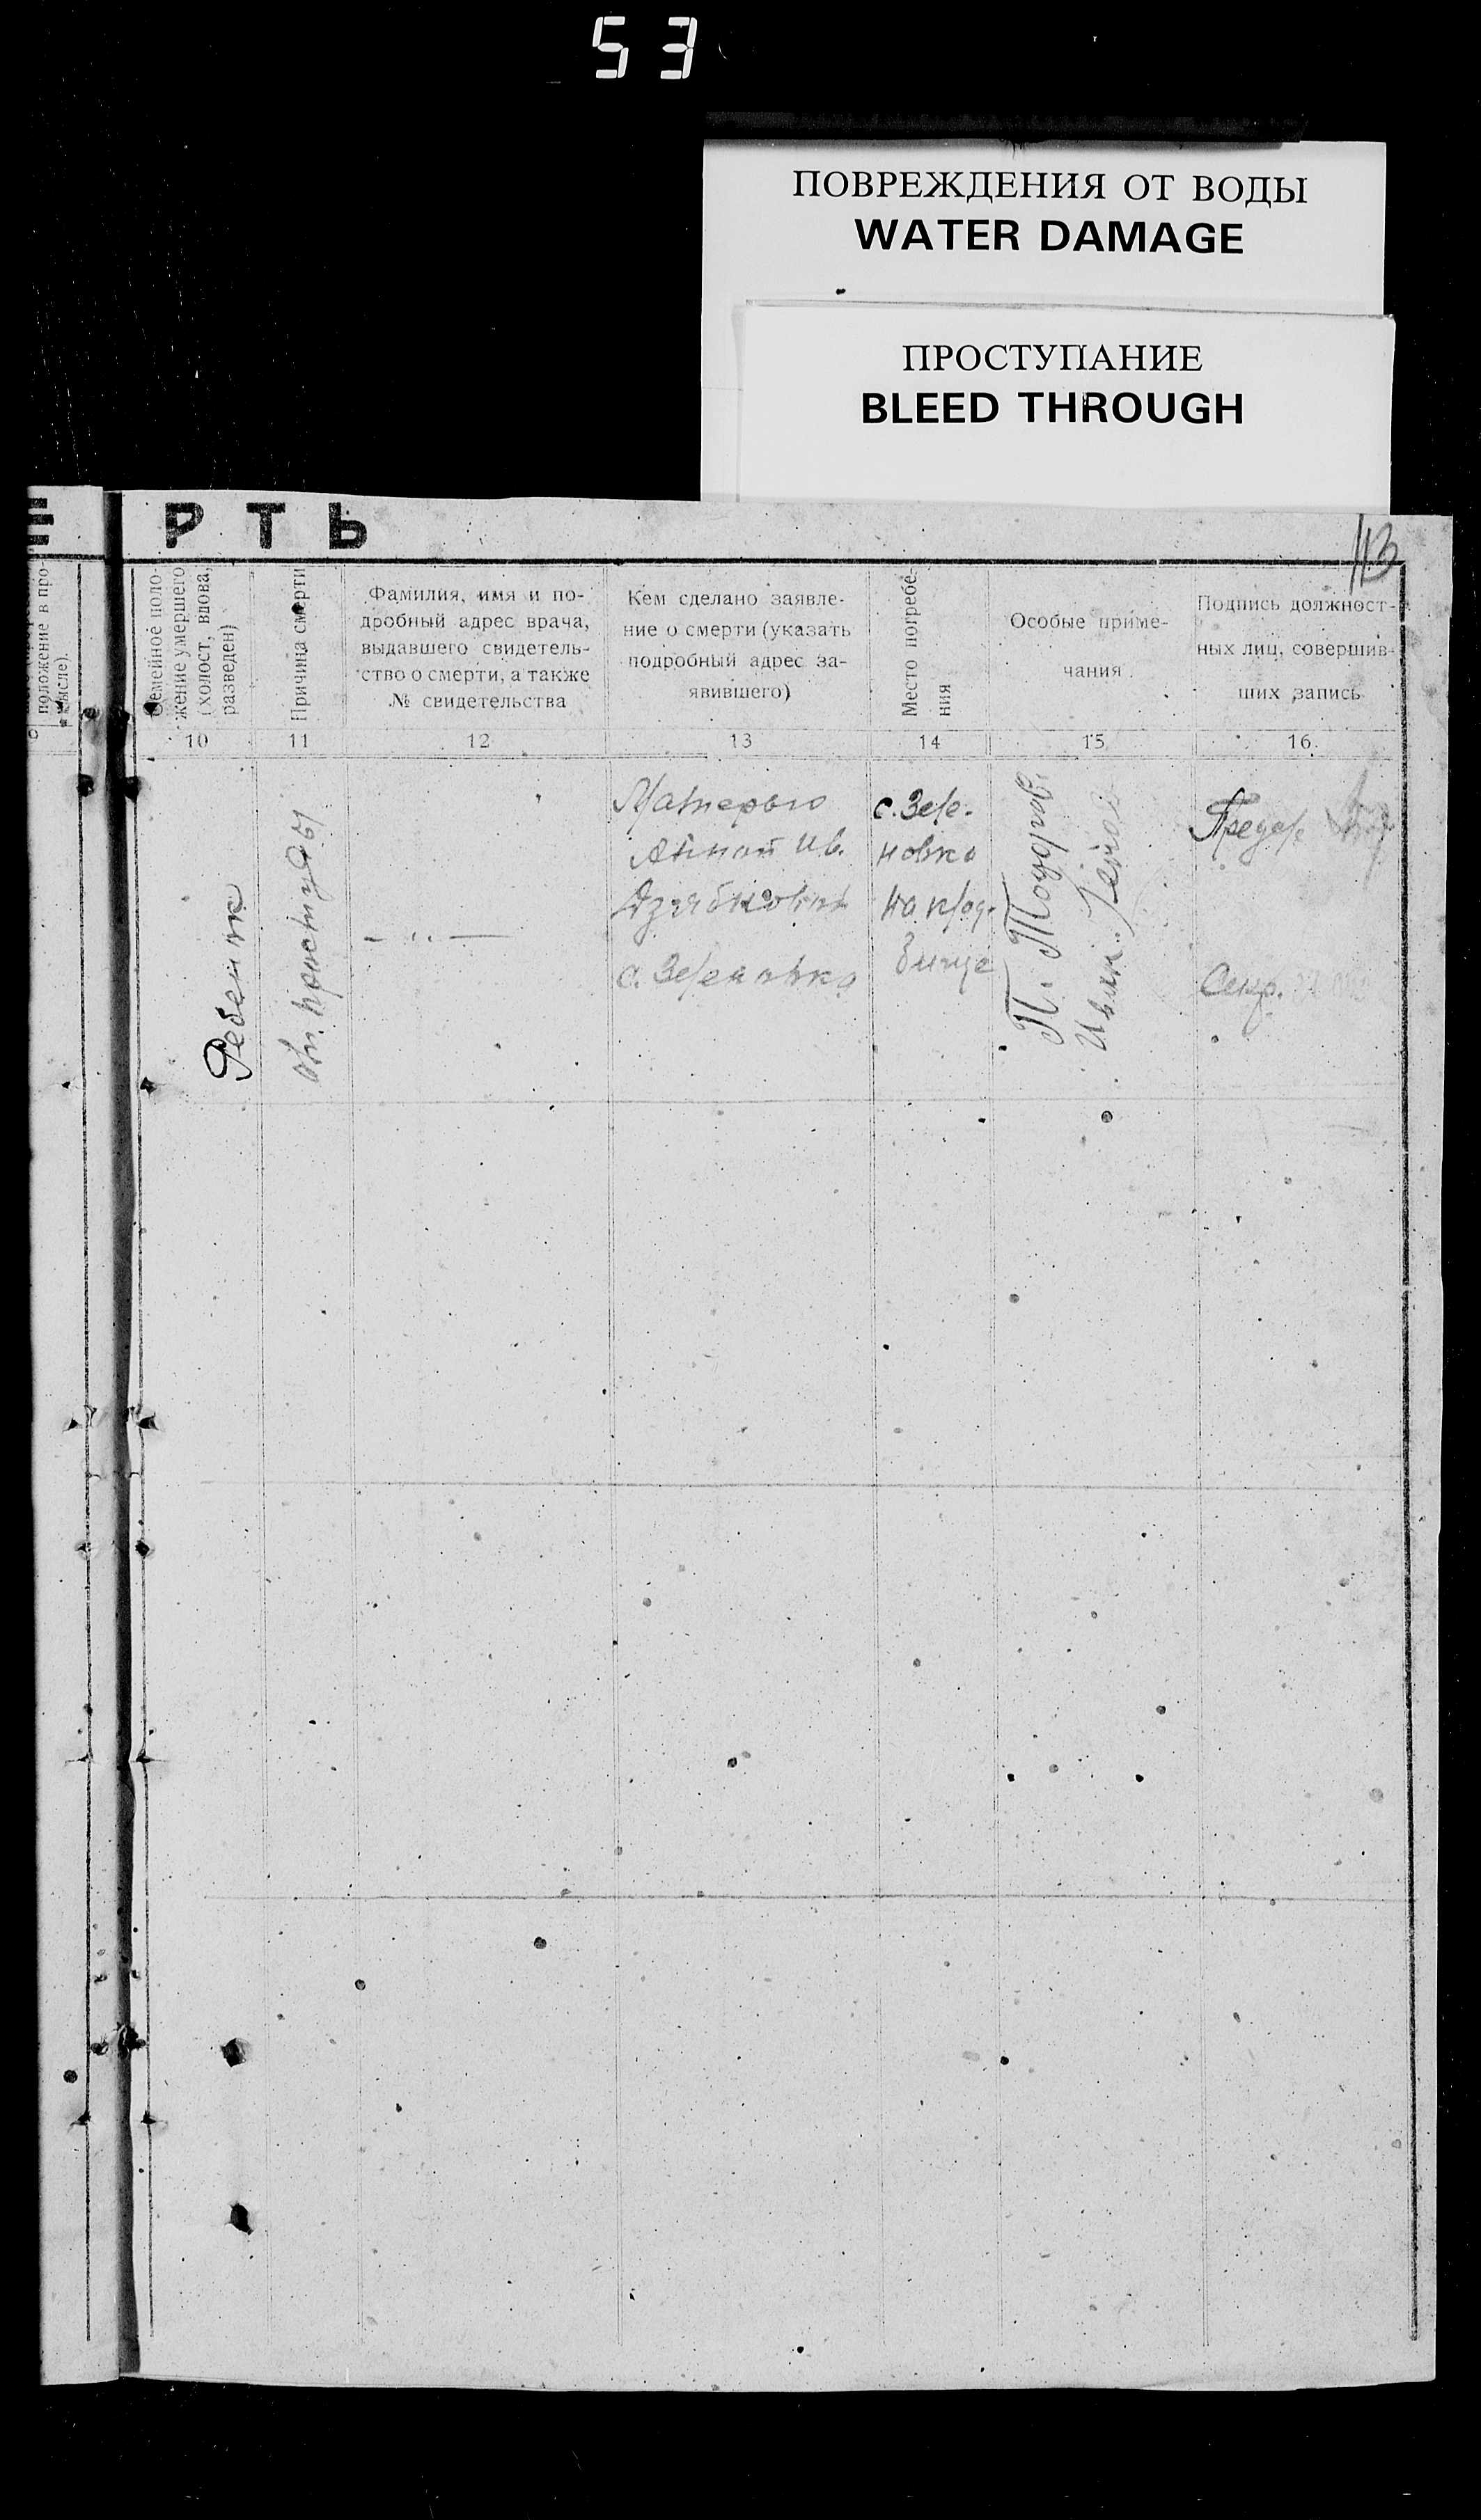 53
ПОВРЕЖДЕНИЯ ОТ ВОДЫ
WATER DAMAGE
ПРОСТУПАНИЕ
BLEED THROUGH
Е РТЬ
113
положение в про-
мысле).
Семейное поло-
жение умершего
(холост, вдова,
разведен)
Причина смерти
Фамилия, имя и по-
дробный адрес врача,
выдавшего свидетель-
ство о смерти, а также
№ свидетельства
Кем сделано заявле-
ние о смерти (указать
подробный адрес за-
явившего)
Место погребе-
ния
Особые приме-
чания
Подпись должност-
ных лиц, совершив-
ших запись
10 11 12 13 14 15 16
Ребенок
От простуды
Матерью
Анной Ив.
с. Зеленовка
с. Зеле-
новка
на клад-
бище
П.
Секр.